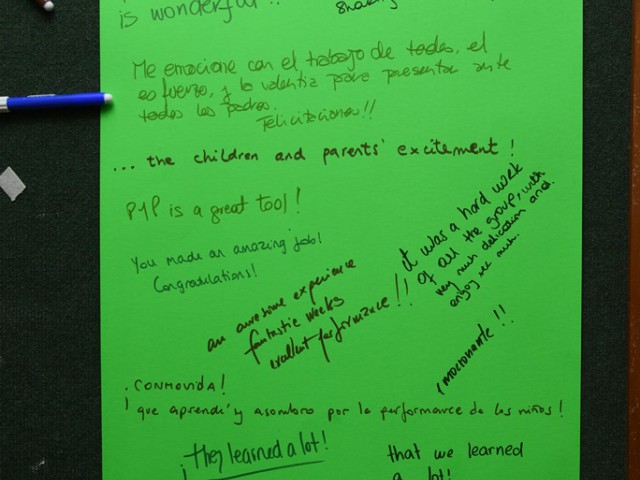 is wonderful!!
Me emocione con el trabajo de todos, el
esfuerzo, y la valentia para presentar ante
todos los padres.
Felicitaciones!!
... the children and parents' excitement!
PYP is a great tool!
You made an amazing job!
Congratulations!
it was a hard work
of all the group, with
very much dedication and
enjoy
an awesome experience
fantastic weeks
excellent performance!!
¡mocionante!!
. CONMOVIDA!
¡ que aprendí y asombro por la performance de los niños!
¡they learned a lot!
that we learned
a lot!